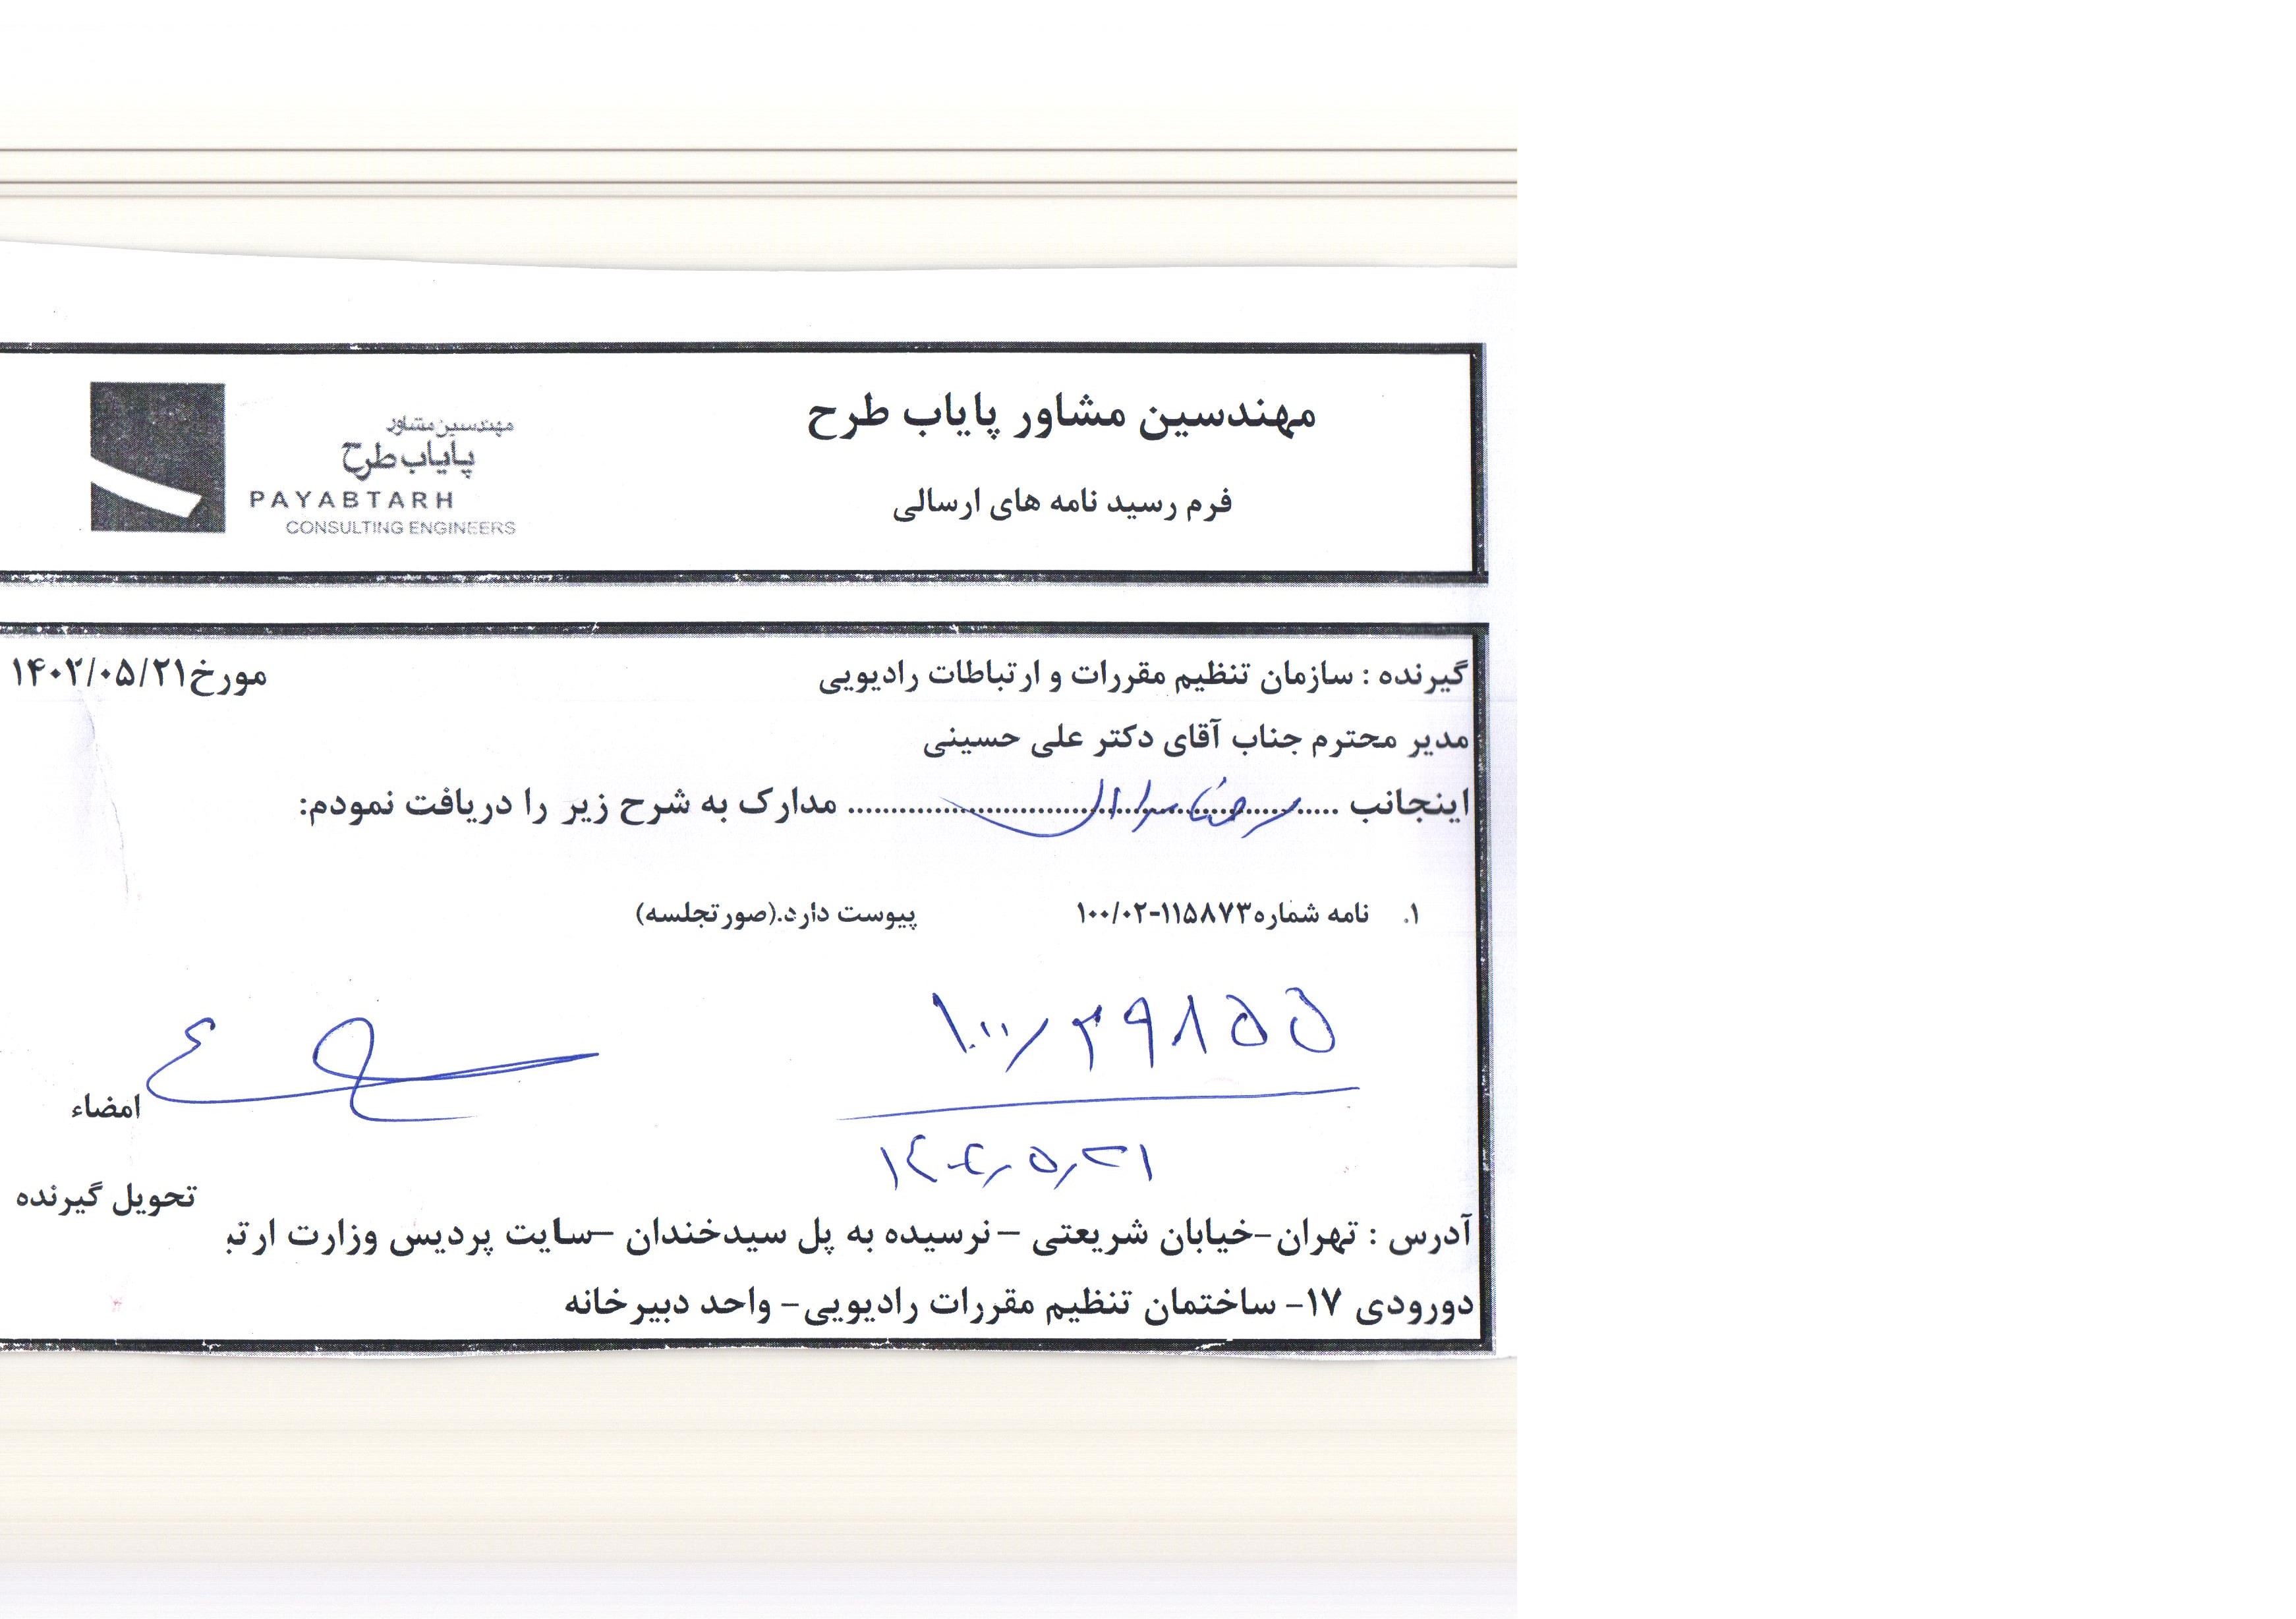 مهندسین مشاور پایاب طرح
فرم رسید نامه های ارسالی
مهندسین مشاور
پایاب طرح
PAYABTARH
CONSULTING ENGINEERS
گیرنده : سازمان تنظیم مقررات و ارتباطات رادیویی
مورخ۱۴۰۲/۰۵/۲۱
مدیر محترم جناب آقای دکتر علی حسینی
اینجانب .................... مدارک به شرح زیر را دریافت نمودم:
۱. نامه شماره۱۱۵۸۷۳-۱۰۰/۰۲ پیوست دارد.(صورتجلسه)
۱۰۰/۳۹۸۵۵
۱۴۰۲/۵/۲۱
امضاء
تحویل گیرنده
آدرس : تهران-خیابان شریعتی – نرسیده به پل سیدخندان –سایت پردیس وزارت ارتب
دورودی ۱۷- ساختمان تنظیم مقررات رادیویی- واحد دبیرخانه